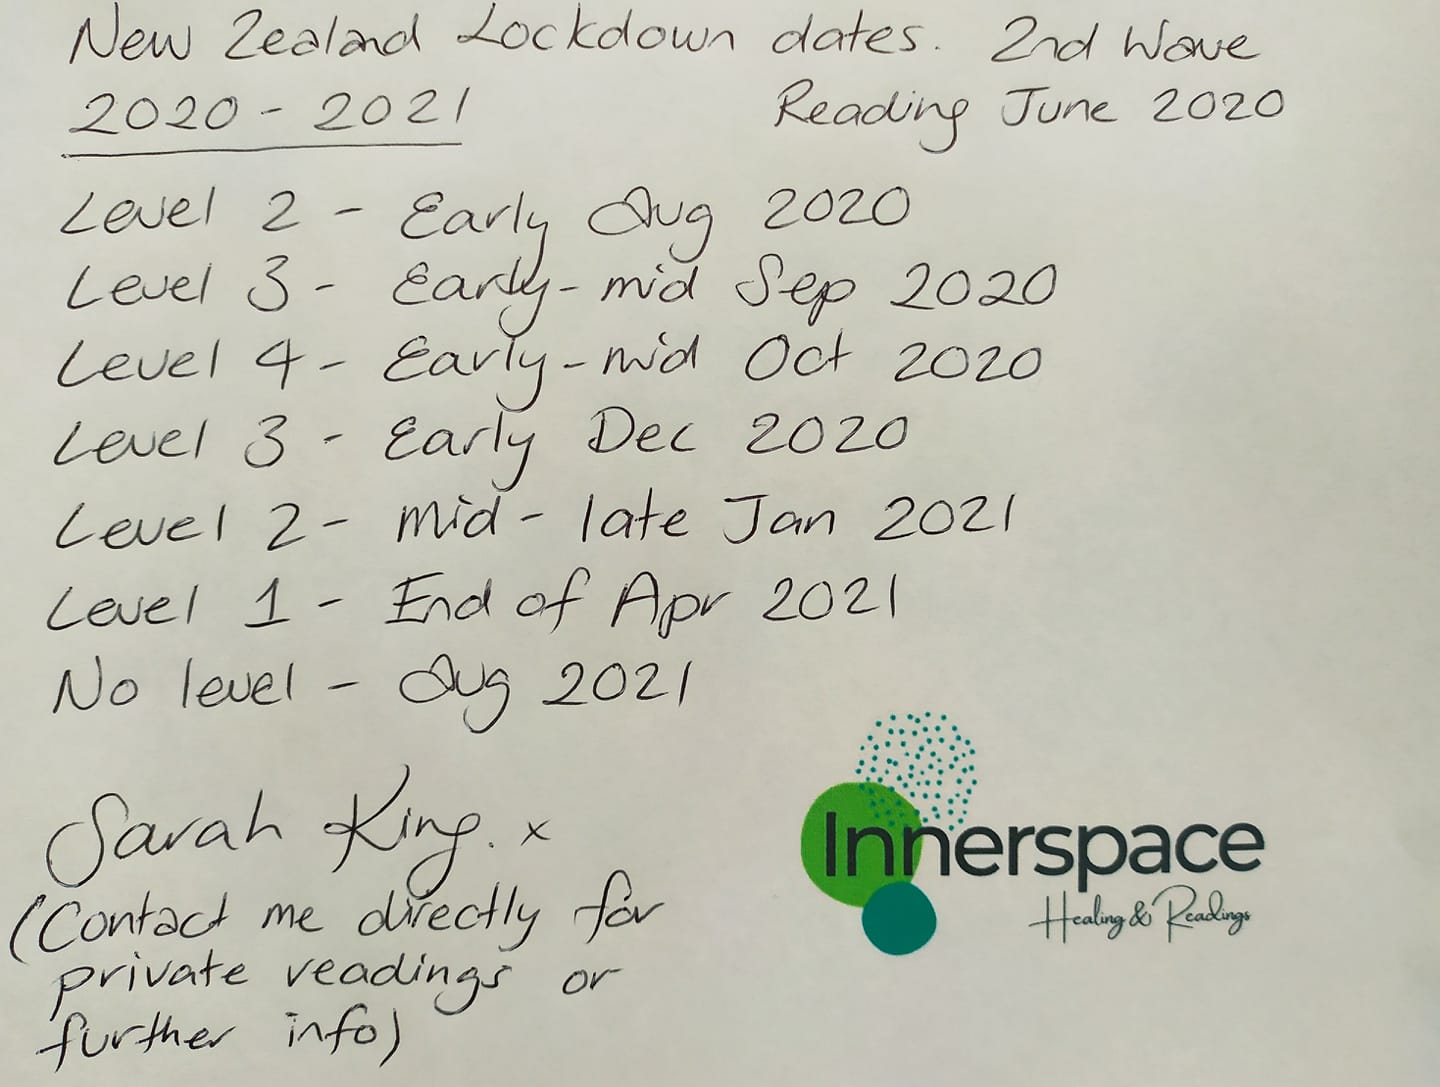 New Zealand Lockdown dates. 2nd Wave
2020 - 2021 Reading June 2020
Level 2 - Early Aug 2020
Level 3 - Early-mid Sep 2020
Level 4 - Early-mid Oct 2020
Level 3 - Early Dec 2020
Level 2 - mid-late Jan 2021
Level 1 - End of Apr 2021
No level - Aug 2021
Sarah King. x
(Contact me directly for
private readings or
further info)
Innerspace
Healing & Readings